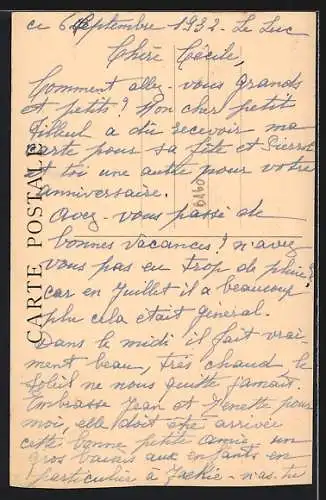 ce 6 Septembre 1932 - Le Luc
Chère Cécile,
Comment allez-vous grands
et petits? Mon cher petit
filleul a dû recevoir ma
carte pour sa fête et Pierrot
et toi une autre pour votre
anniversaire.
Avez-vous passé de
bonnes vacances? n'avez
vous pas eu trop de pluie?
car en Juillet il a beaucoup
plu cela était général.
Dans le midi il fait vrai-
ment beau, très chaud, le
Soleil ne nous quitte jamais.
Embrasse Jean et Ginette pour
moi, elle doit être arrivée
cette bonne petite amie, un
gros baiser aux enfants en
particulier à Jackie - as tu
CARTE POSTALE